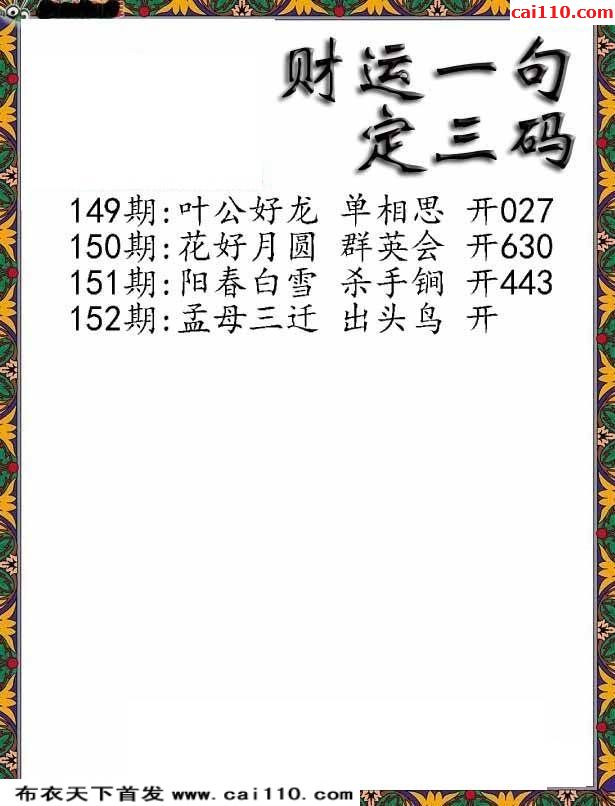 cai110.com
财运一句
定三码
149期:叶公好龙 单相思 开027
150期:花好月圆 群英会 开630
151期:阳春白雪 杀手锏 开443
152期:孟母三迁 出头鸟 开
布衣天下首发 www.cai110.com